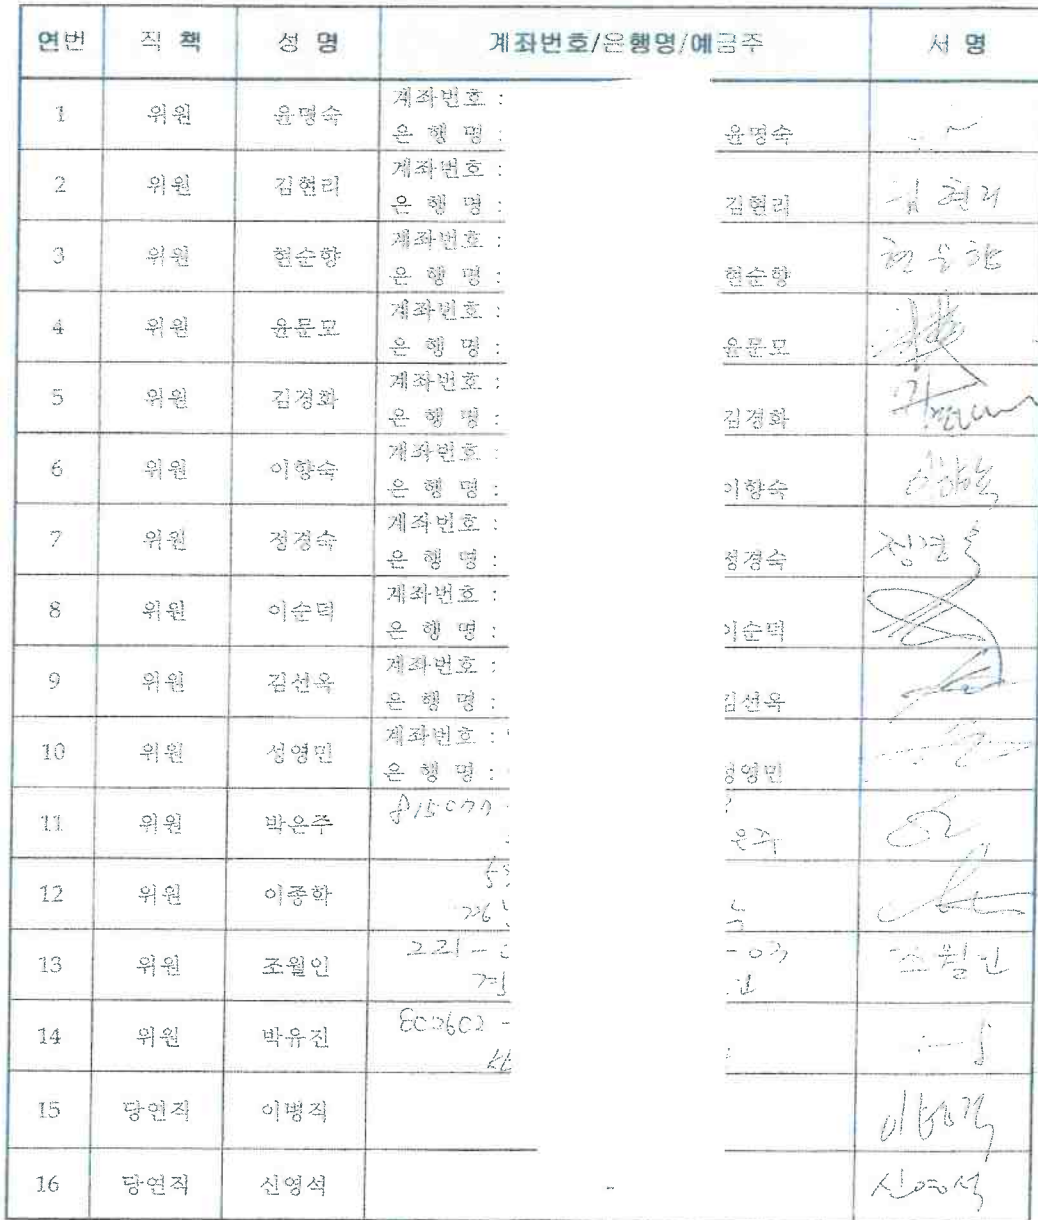 연번 직 책 성 명 계좌번호/은행명/예금주 서 명
1 위원 윤명숙 계좌번호 :
은 행 명 : 윤명숙
2 위원 김현리 계좌번호 :
은 행 명 : 김현리 김현리
3 위원 현순향 계좌번호 :
은 행 명 : 현순향 현순향
4 위원 윤문모 계좌번호 :
은 행 명 : 윤문모
5 위원 김경화 계좌번호 :
은 행 명 : 김경화
6 위원 이향숙 계좌번호 :
은 행 명 : 이향숙 이향숙
7 위원 정경숙 계좌번호 :
은 행 명 : 정경숙 정경숙
8 위원 이순덕 계좌번호 :
은 행 명 : 이순덕
9 위원 김선옥 계좌번호 :
은 행 명 : 김선옥
10 위원 성영민 계좌번호 :
은 행 명 : 성영민
11 위원 박은주 815077 -
은주
12 위원 이종학
13 위원 조월인 221 - - 03 조월인
14 위원 박유진 802602 -
15 당연직 이병직 이병직
16 당연직 신영석 - 신영석